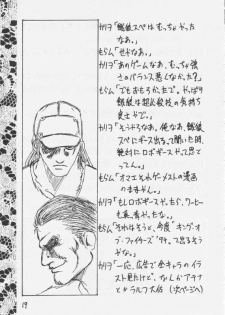 カリヲ「餓狼スペはもっちゃだった
なあ。」
もらん「せやなあ。」
カリヲ「あのゲームなあ、もっちゃ強
さのバランス悪しなかった？」
もらん「でもおもろかったで。やっぱり
餓狼は超必殺技の気持ち
良さやで。」
カリヲ「そうやろなあ。俺なあ、餓狼
スペにギース出るって聞いた時、
絶対にロボギースやって思と
ってん。」
もらん「オマエそれゲーメストの漫画
のまますやん。」
カリヲ「もしロボギースやと、ワーヒー
も真っ青やったな。」
もらん「それはそうと、今度『キング・オ
ブ・ファイターズ'94』って出るそう
やな。」
カリヲ「一応、広告で全キャラのイラ
スト見たけど、なんかアテナ
とかラルフ大佐（次ページへ）
19